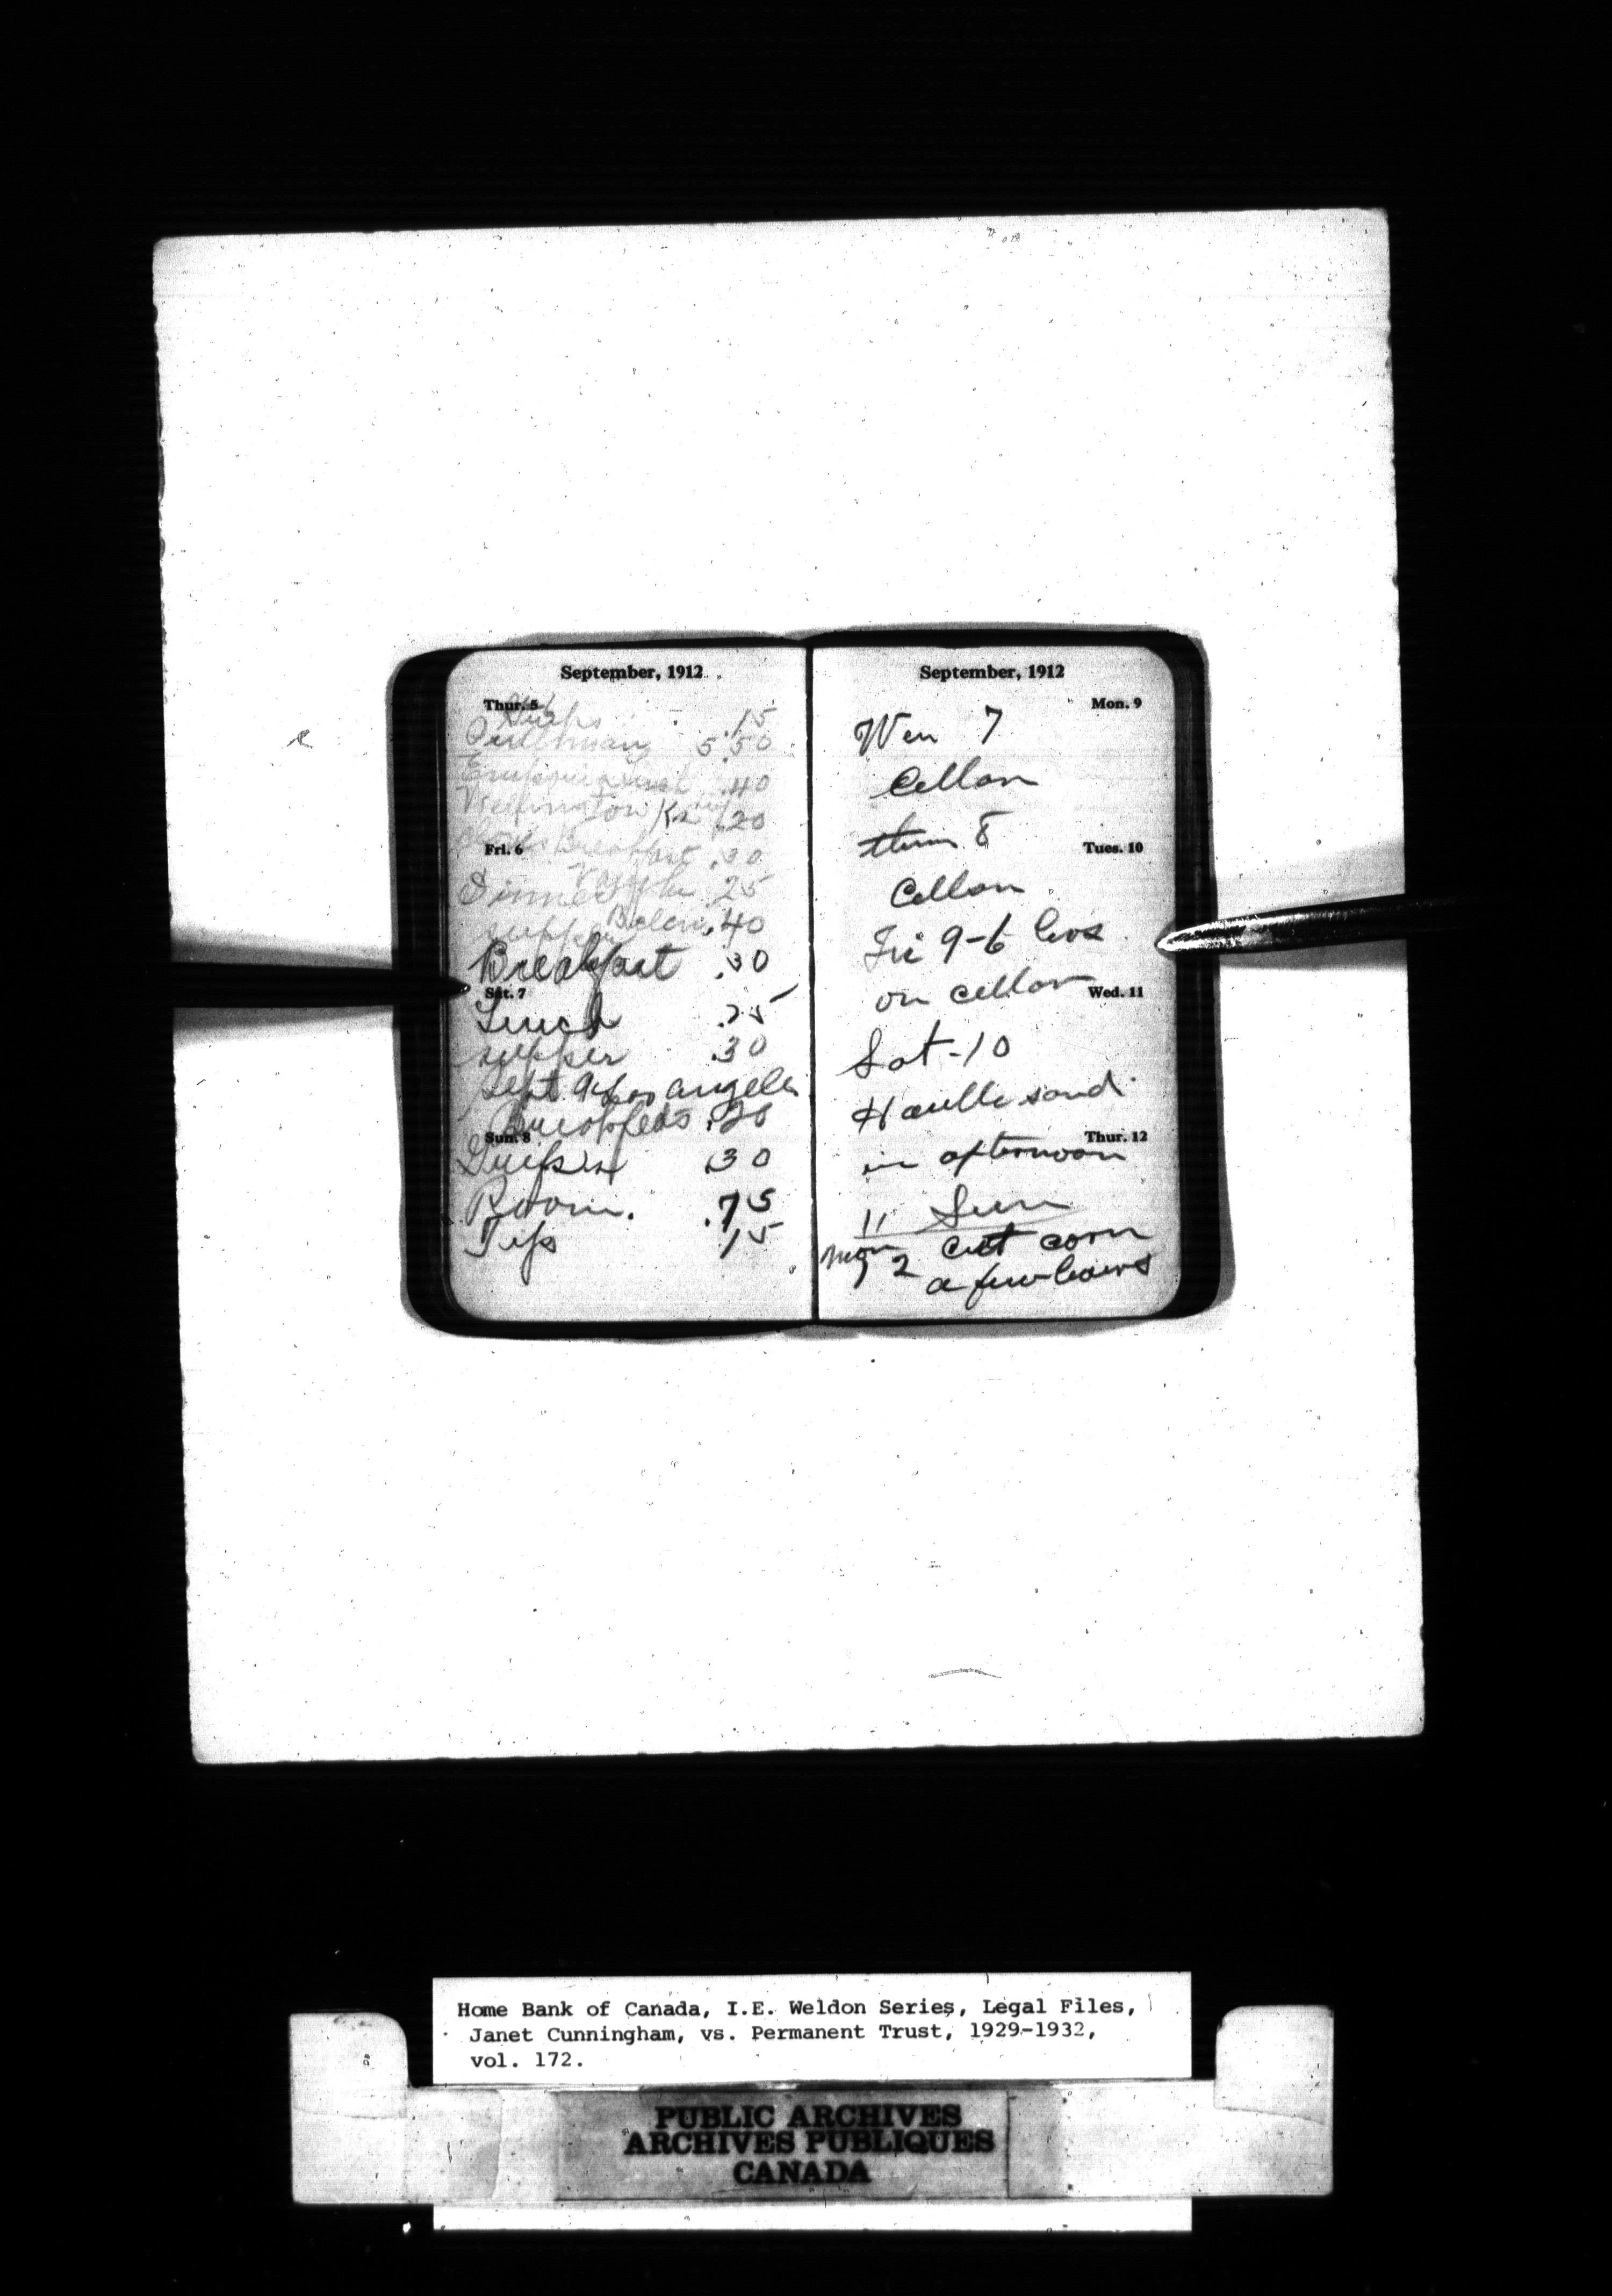 September, 1912
Thur. 5
.15
Pullman 5.50
.40
Wellington Ks .20
Breakfast .30
Fri. 6
Dinner 25
supper Belen .40
Breakfast .30
Sat. 7
Lunch .25
supper .30
Sept. 9 Los Angeles
.20
Sun. 8
.30
Room. .75
Tips 15
September, 1912
Mon. 9
Wen 7
Cellar
thur 8
Tues. 10
Cellar
Fri 9-6 hrs
on cellar
Wed. 11
Sat-10
Haulle sand
Thur. 12
in afternoon
11 Sun
Mon 2 cut corn
a few hours
Home Bank of Canada, I.E. Weldon Series, Legal Files,
Janet Cunningham, vs. Permanent Trust, 1929-1932,
vol. 172.
PUBLIC ARCHIVES
ARCHIVES PUBLIQUES
CANADA